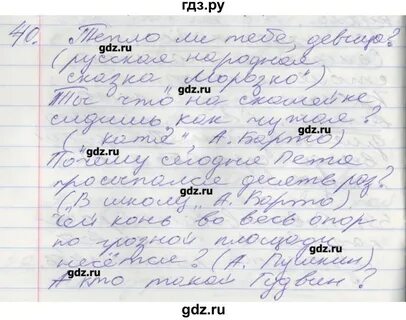 гдз.ру
40. „Тепло ли тебе, девица?
(русская народная
сказка „Морозко")
Ты что на скамейке
сидишь, как чужая?
(„катя", А. Барто)
Почему сегодня Петя
просыпался десять раз?
(„В школу", А. Барто)
Чей конь во весь опор
по грозной площади
несётся? (А. Пушкин)
А кто такой Гудвин?
гдз.ру
гдз.ру
гдз.ру
гдз.ру
гдз.ру
гдз.ру
гдз.ру
гдз.ру